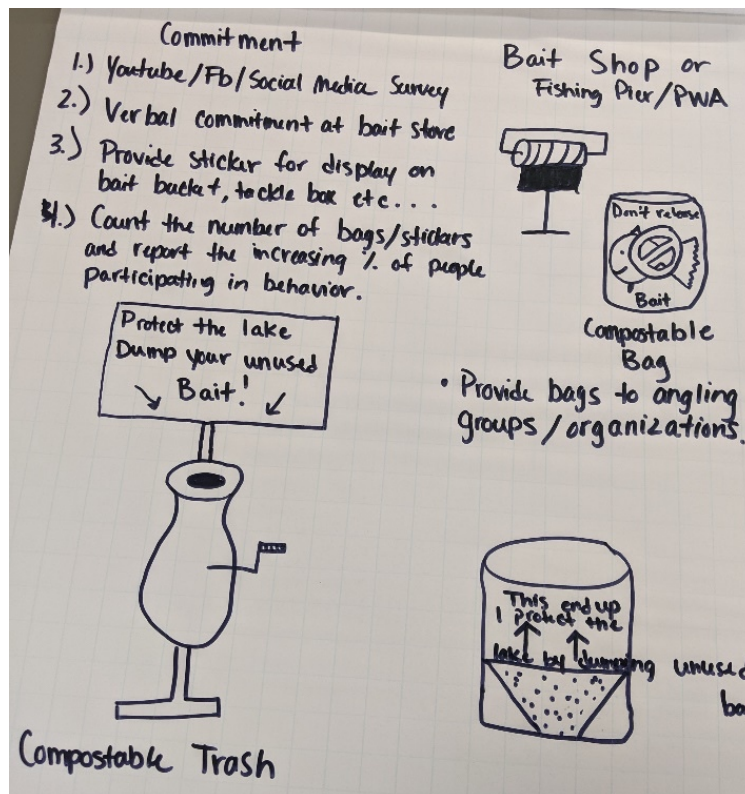 Commitment
1.) Youtube/Fb/Social Media Survey
2.) Verbal commitment at bait store
3.) Provide sticker for display on
bait bucket, tackle box etc...
4.) Count the number of bags/stickers
and report the increasing % of people
participating in behavior.
Protect the lake
Dump your unused
Bait!
Compostable Trash
Bait Shop or
Fishing Pier/PWA
Don't release
Bait
Compostable
Bag
• Provide bags to angling
groups/organizations.
This end up
I protect the
lake by dumping unused